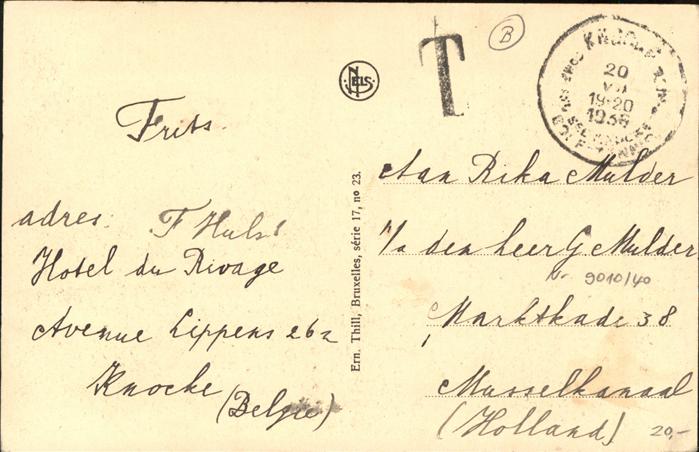 B
T
NELS
KNOCKE
20
VII
19-20
1936
Frits
adres. F Hulst
Hotel du Rivage
Avenue Lippens 262
Knocke
(Belgie)
Ern. Thill, Bruxelles, série 17, no 23.
Aan Rika Mulder
p/a den heer G Mulder
Nr 9010/40
Marktkade 38
Musselkanaal
(Holland)
20,-